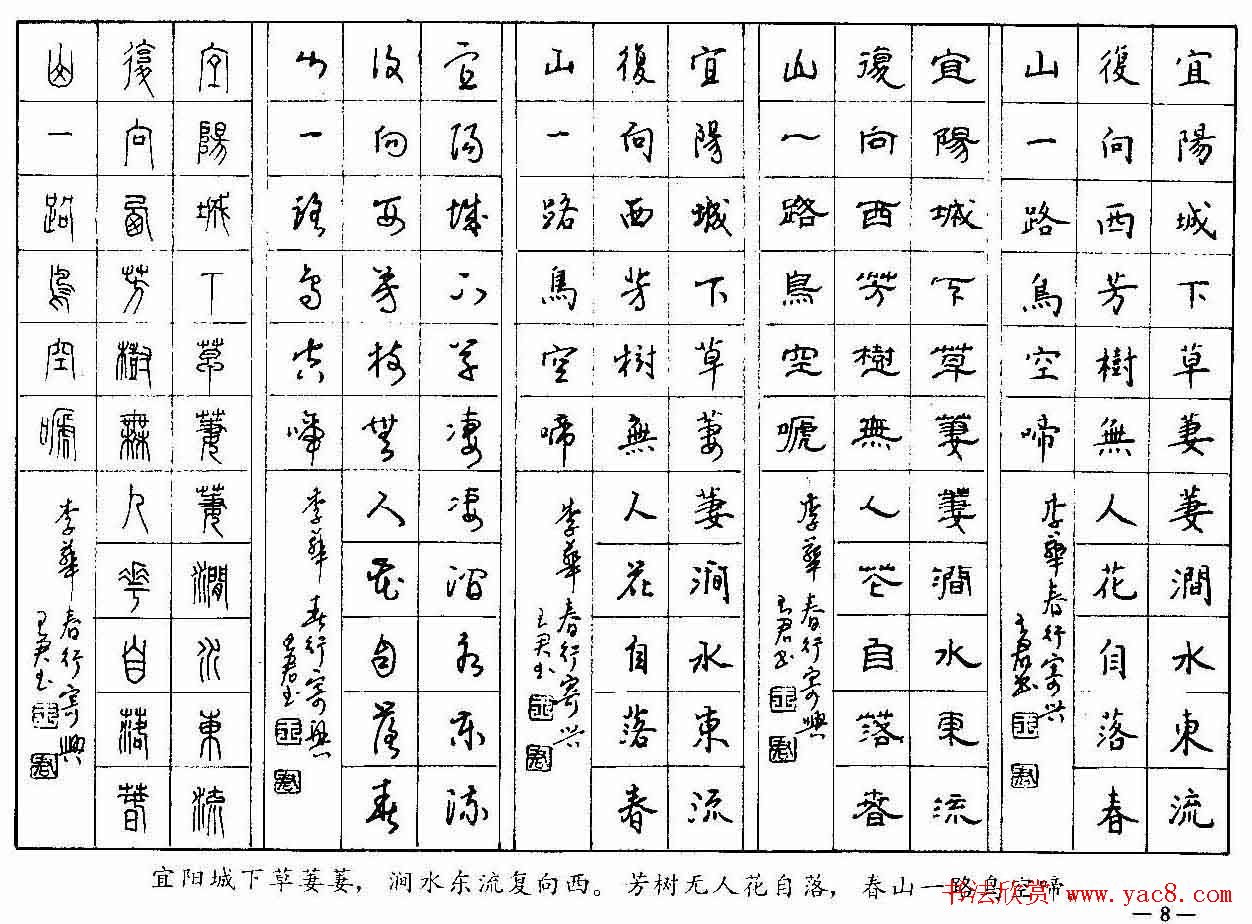 宜陽城下草萋萋澗水東流
復向西芳樹無人花自落春
山一路鳥空啼
李華春行寄兴
王君书
宜陽城下草萋萋澗水東流
復向西芳樹無人花自落春
山一路鳥空啼
李華春行寄興
王君书
宜陽城下草萋萋澗水東流
復向西芳樹無人花自落春
山一路鳥空啼
李華春行寄兴
王君书
宜陽城下草凄凄澗水東流
復向西芳樹無人花自落春
山一路鳥空啼
李華春行寄興
王君书
宜陽城下草萋萋澗水東流
復向西芳樹無人花自落春
山一路鳥空嗁
李華春行寄興
王君书
宜阳城下草萋萋，涧水东流复向西。芳树无人花自落，春山一路鸟空啼
书法欣赏 www.yac8.com
—8—